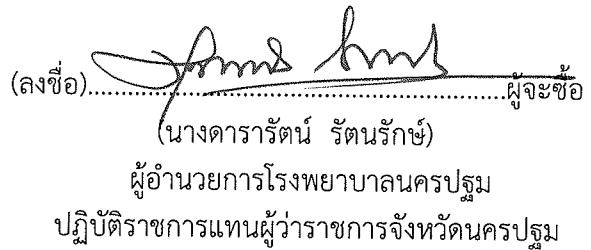 (ลงชื่อ)..........................................................ผู้จะซื้อ
(นางดารารัตน์ รัตนรักษ์)
ผู้อำนวยการโรงพยาบาลนครปฐม
ปฏิบัติราชการแทนผู้ว่าราชการจังหวัดนครปฐม